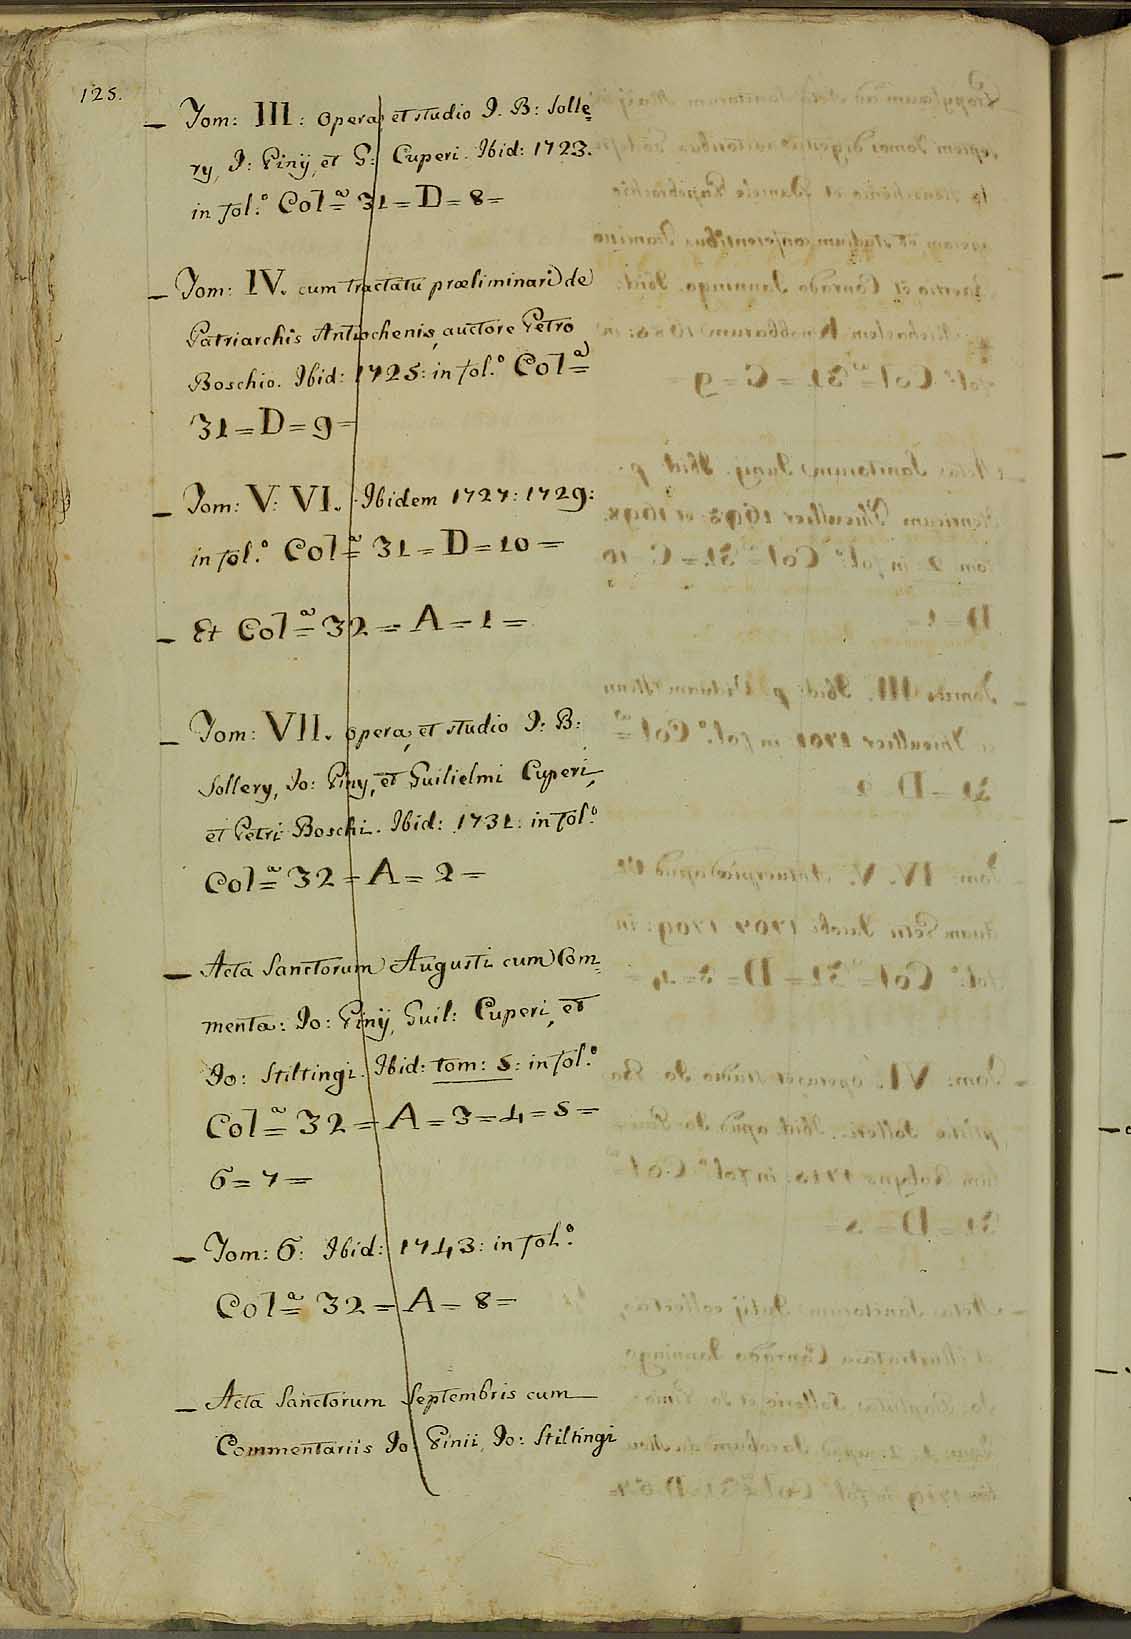 125.
– Tom: III: opera, et studio J. B: Solle=
ry, J: Piny, et G: Cuperi. Ibid: 1723.
in fol.º Colª= 31=D=8=
– Tom: IV. cum tractatu præliminari de
Patriarchis Antiochenis, auctore Petro
Boschio. Ibid: 1725: in fol.º Colª=
31=D=9=
– Tom: V: VI. Ibidem 1727: 1729:
in fol.º Colª= 31=D=10=
– Et Colª= 32=A=1=
– Tom: VII. opera, et studio J: B:
Sollery, Jo: Piny, et Guilielmi Cuperi,
et Petri Boschi. Ibid: 1731: in fol.º
Colª= 32=A=2=
– Acta Sanctorum Augusti cum Com=
menta: Jo: Pinij, Guil: Cuperi, et
Jo: Stiltingi. Ibid: tom: 5: in fol.º
Colª= 32=A=3=4=5=
6=7=
– Tom: 6: Ibid: 1743: in fol.º
Colª= 32=A=8=
– Acta Sanctorum Septembris cum
Commentariis Jo: Pinii, Jo: Stiltingi